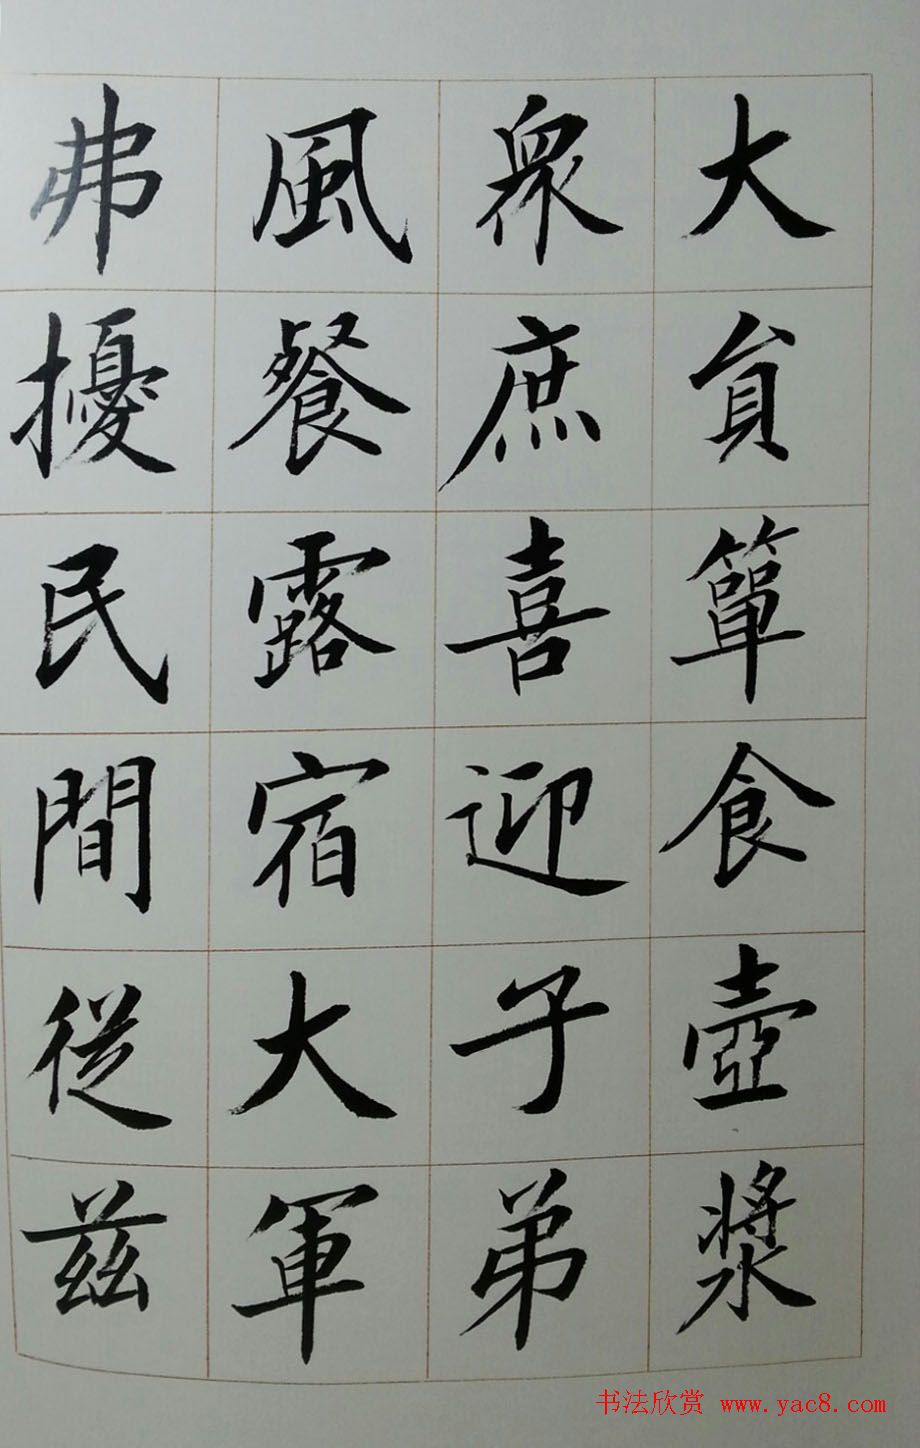 大負簞食壺漿
衆庶喜迎子弟
風餐露宿大軍
弗擾民間從兹
书法欣赏 www.yac8.com